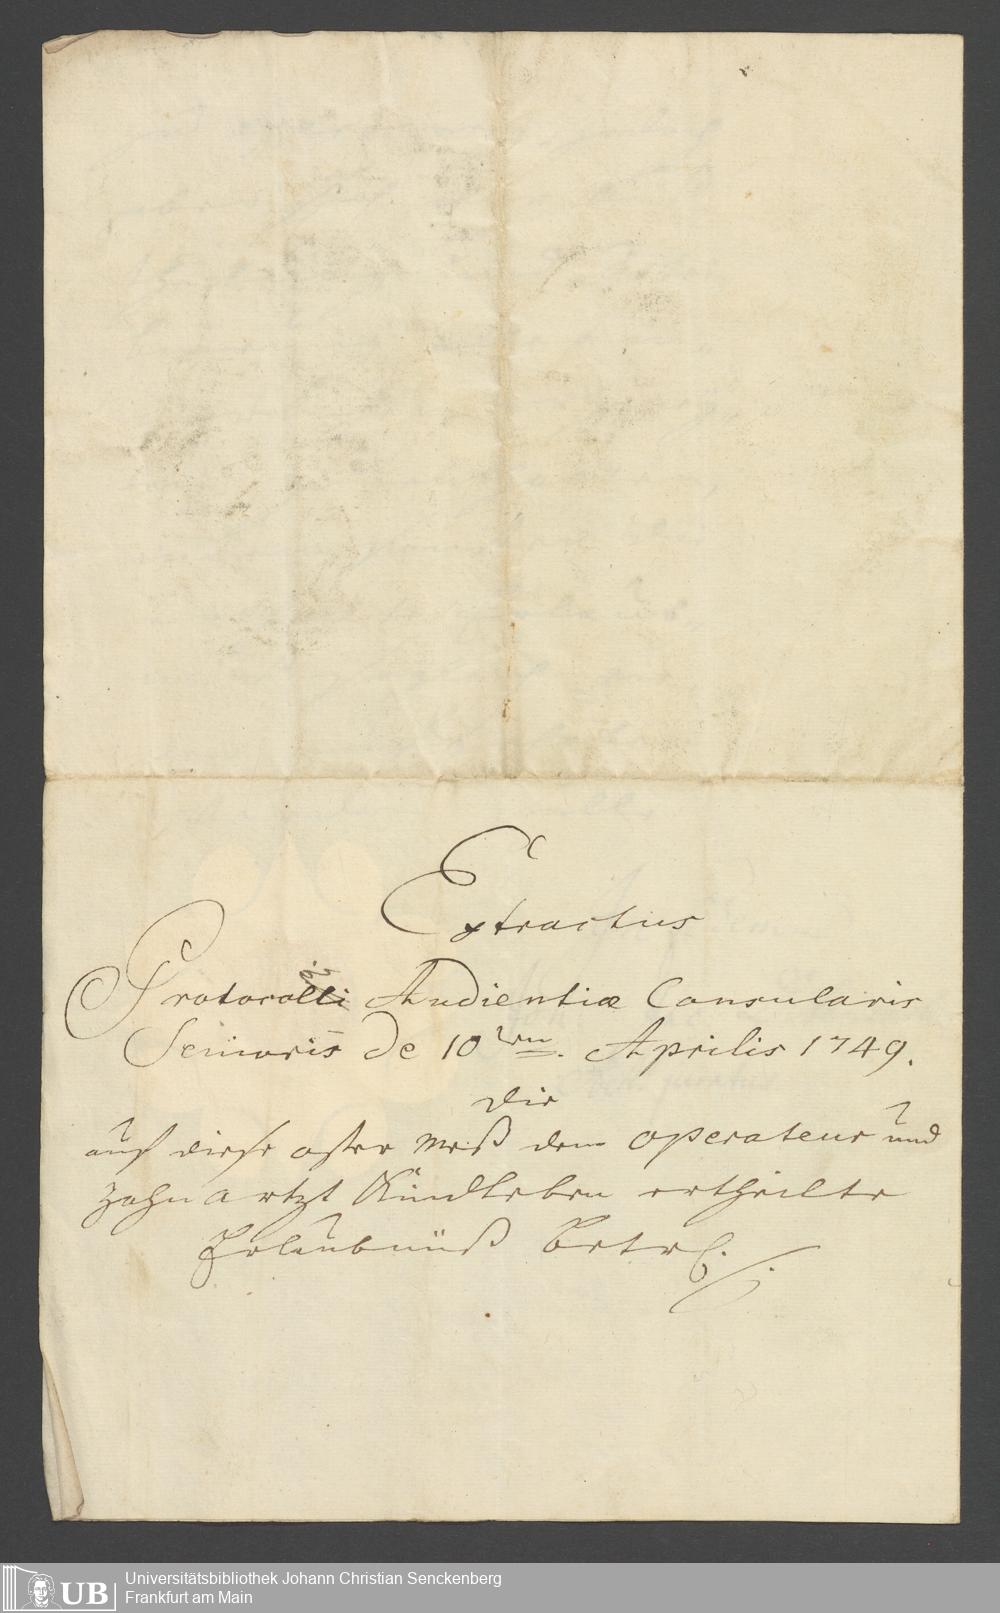 Extractus
Protocolli Audientiæ Consularis
Senioris de 10ten. Aprilis 1749.
die
auf diese oster Meß dem operateur und
zahn artzt Kindleben ertheilte
Erlaubnüß betrf.
UB
Universitätsbibliothek Johann Christian Senckenberg
Frankfurt am Main